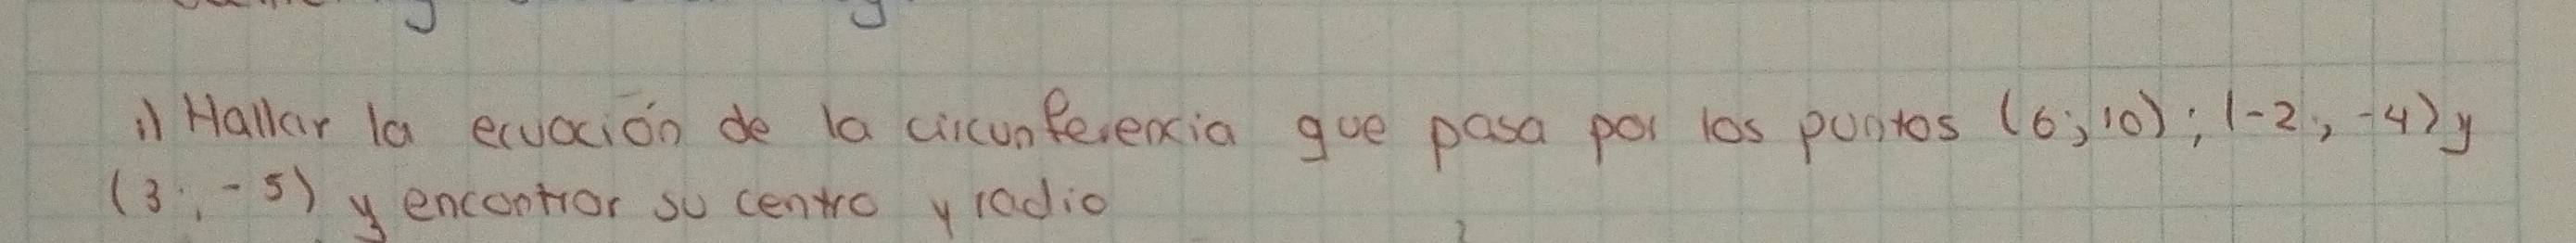 1) Hallar la ecuación de la circunferencia que pasa por los puntos (6; 10); (-2; -4) y
(3; -5) y encontrar su centro y radio